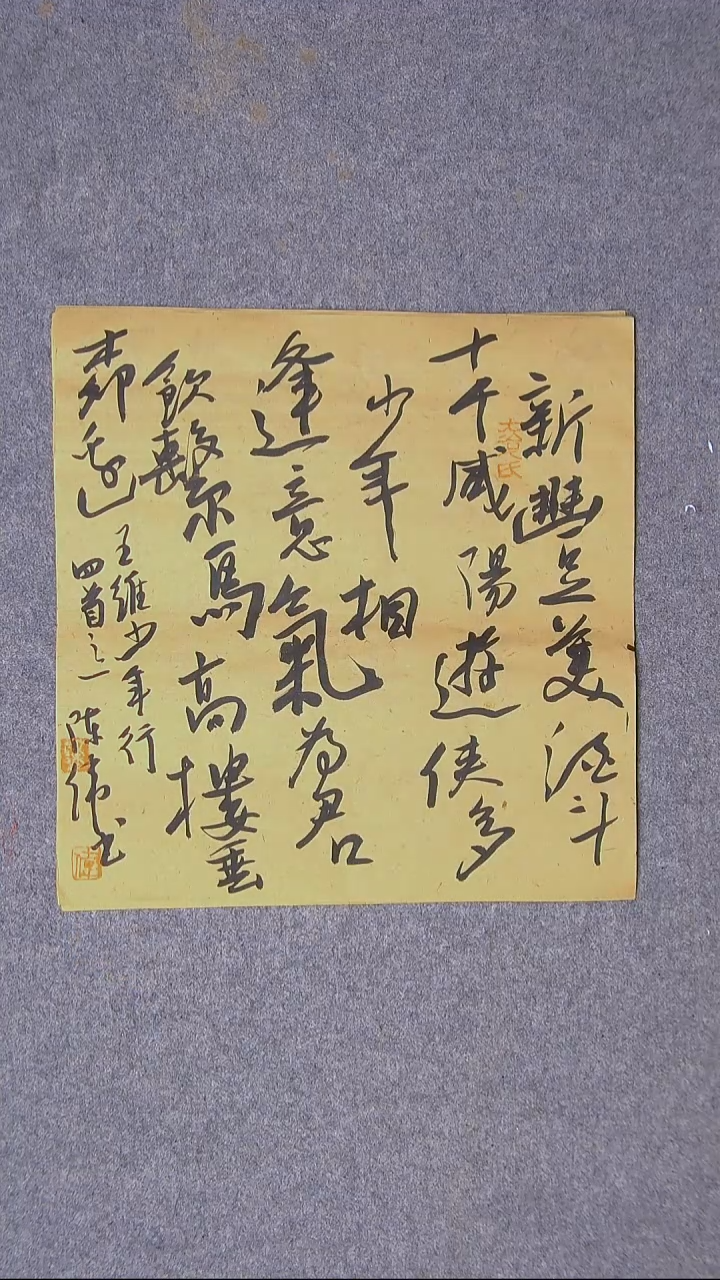 新豐美酒斗
十千咸陽遊侠多
少年相
逢意氣为君
飲繫馬高樓垂
柳边
王維少年行
四首之一
陈偉书